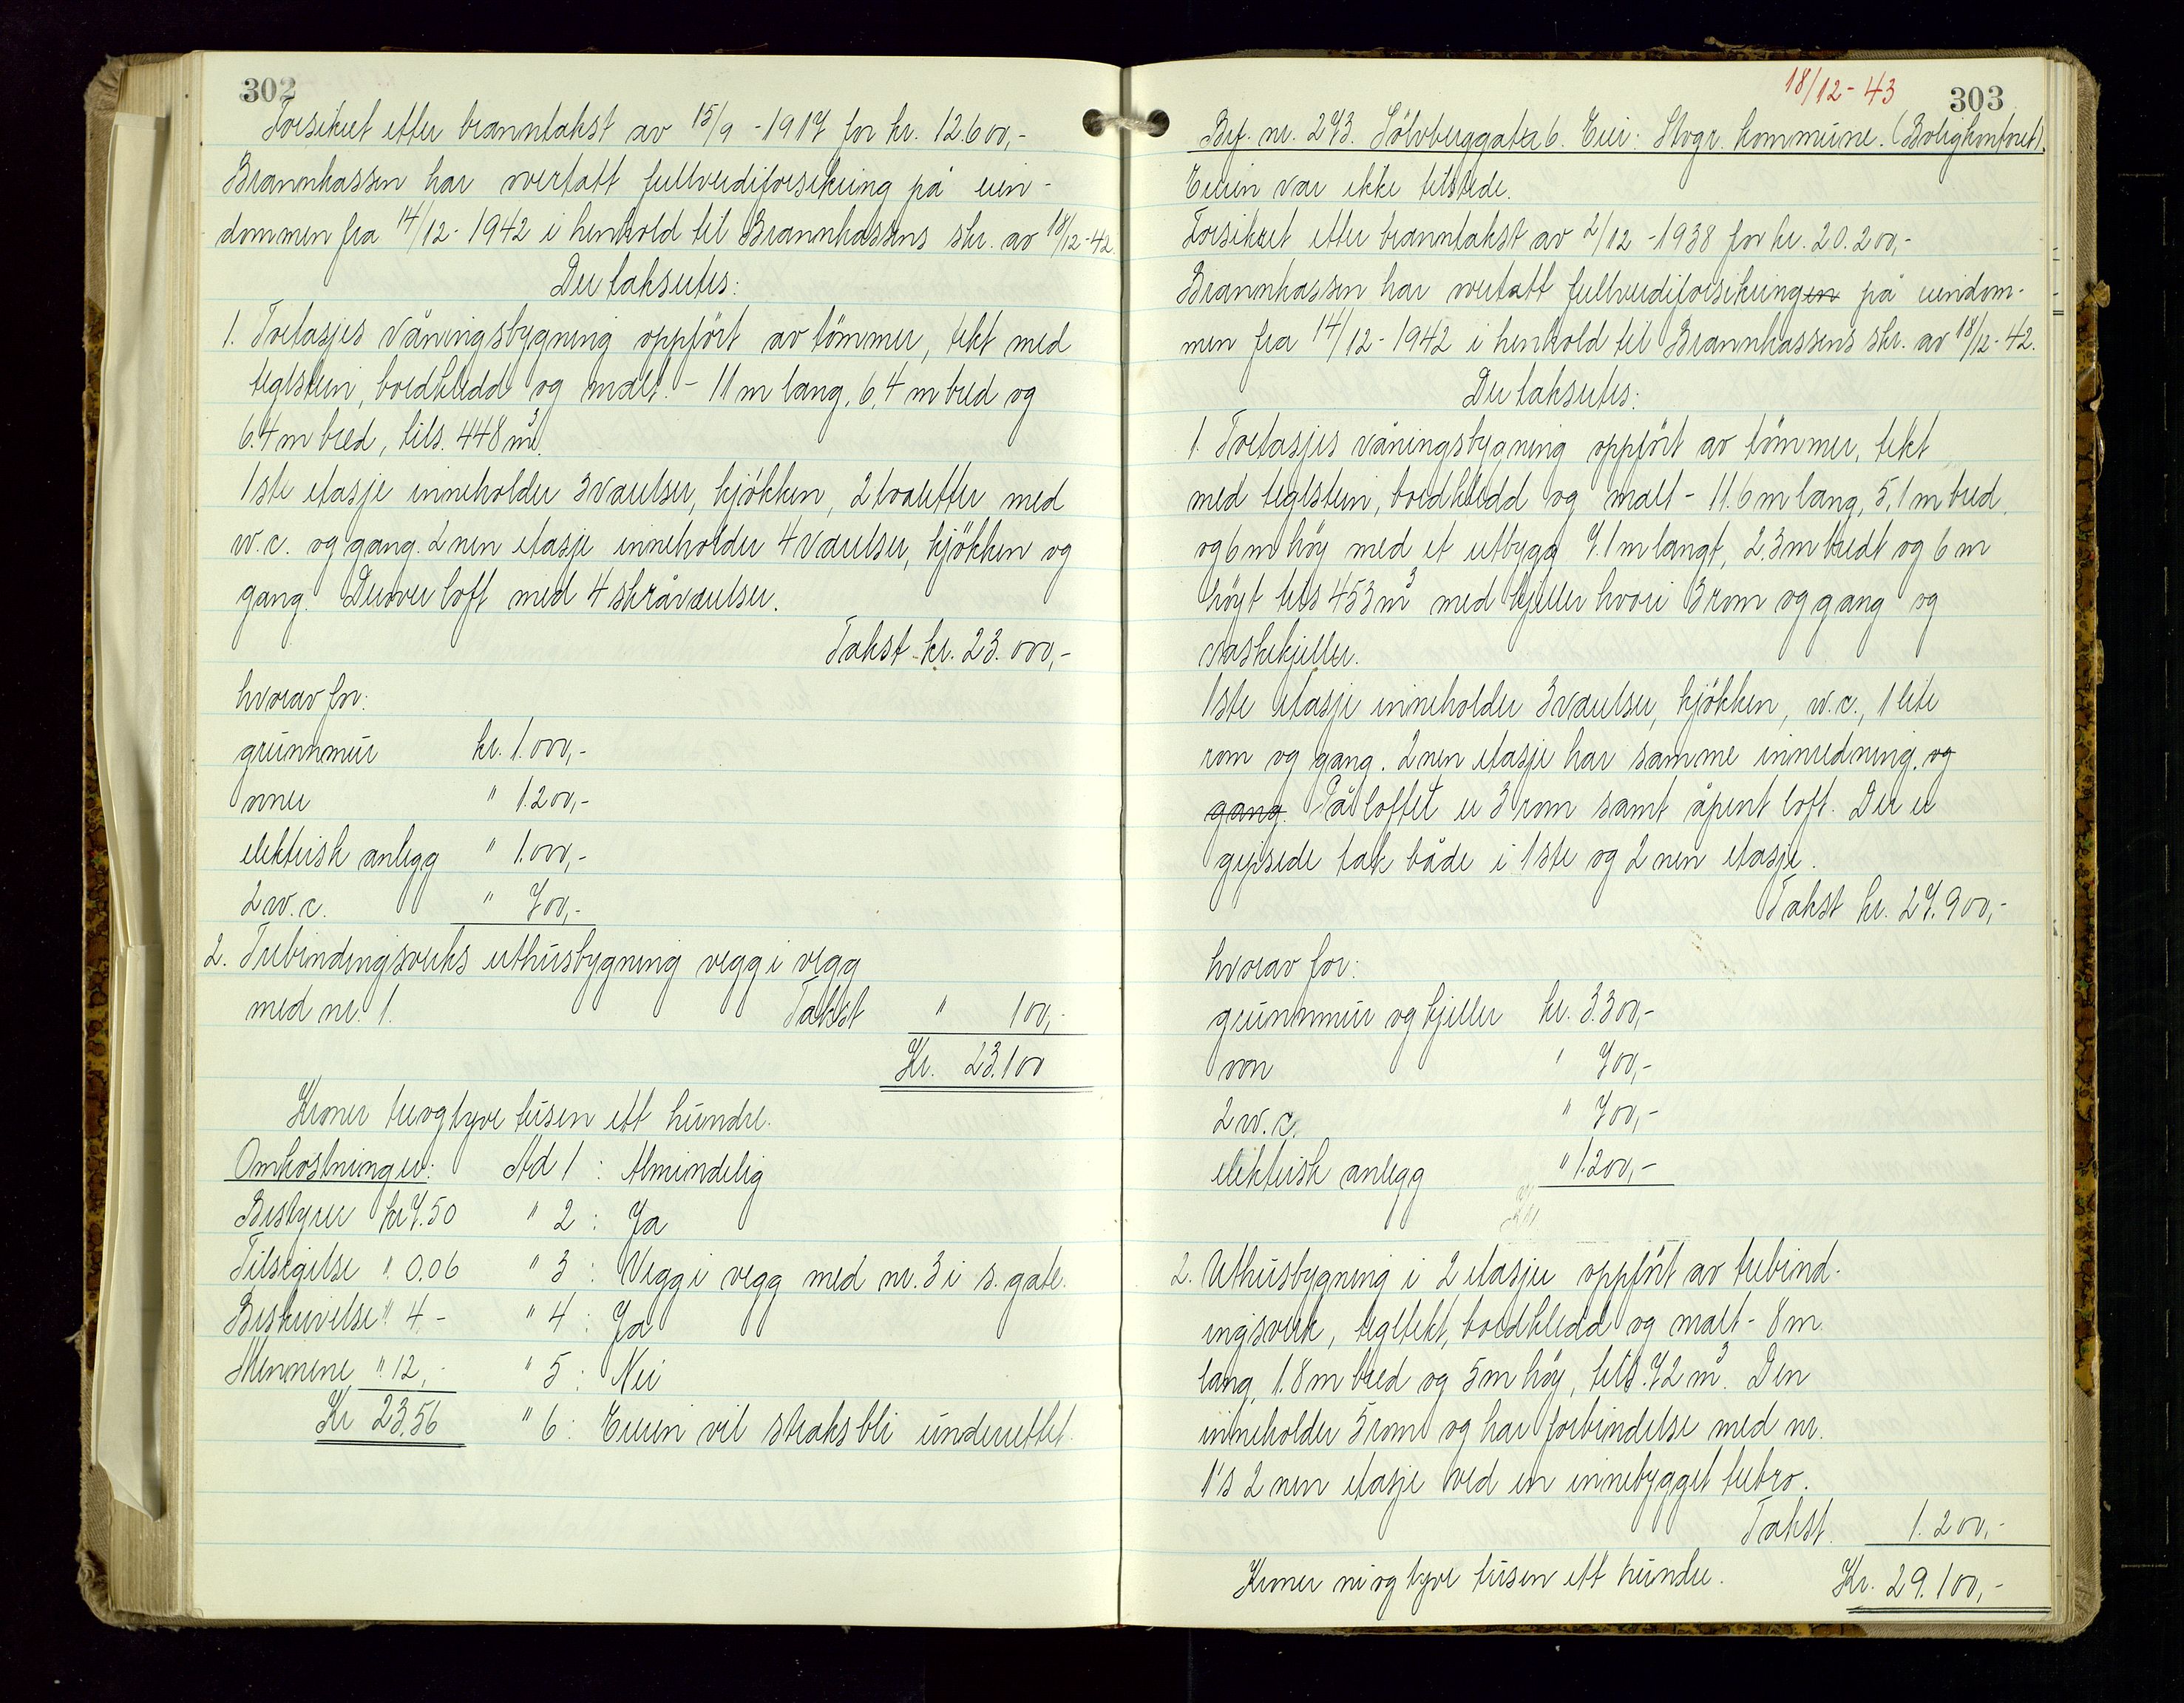 302
Forsikret etter branntakst av 15/9 - 1917 for kr. 12.600,-
Brannkassen har overtatt fullverdiforsikring på eien-
dommen fra 14/12 - 1942 i henhold til Brannkassens skr. av 18/12-42.
Der takseres:
1. Toetasjes våningsbygning oppført av tömmer, tekt med
teglstein, bordkledd og malt. - 11 m lang, 6,4 m bred og
6.4 m bred, tils. 448 m³.
1ste etasje inneholder 3 værelser, kjökken, 2 toaletter med
w.c. og gang. 2nen etasje inneholder 4 værelser, kjökken og
gang. Derover loft med 4 skråværelser.
Takst kr. 23.000,-
hvorav for:
grunnmur kr. 1.000,-
ovner " 1.200,-
elektrisk anlegg " 1.000,-
2 w.c. " 700,-
2. Trebindingsverks uthusbygning vegg i vegg
med nr. 1. Takst " 100,-
Kr. 23.100
Kroner treogtyve tusen ett hundre.
Omkostninger: Ad 1 : Almindelig
Bestyrer kr 7.50 " 2 : Ja
Tilsigelse " 0.06 " 3 : Vegg i vegg med nr. 3 i s. gate.
Beskrivelse " 4,- " 4 : Ja
Mennene " 12,- " 5 : Nei
Kr 23,56 " 6 : Eieren vil straks bli underrettet.
18/12 - 43
303
Brf. nr. 273. Sölvberggata 6. Eier: Stvgr. kommune. (Boligkontoret).
Eieren var ikke tilstede.
Forsikret etter branntakst av 2/12 - 1938 for kr. 20.200,-
Brannkassen har overtatt fullverdiforsikringen på eiendom-
men fra 14/12 - 1942 i henhold til Brannkassens skr. av 18/12-42.
Der takseres:
1. Toetasjes våningsbygning oppført av tömmer, tekt
med teglstein, bordkledd og malt - 11.6 m lang, 5,1 m bred,
og 6 m höy med et utbygg 7.1 m langt, 2,3 m bredt og 6 m
höyt tils 453 m³ med kjeller hvori 3 rom og gang og
vaskekjeller.
1ste etasje inneholder 3 værelser, kjökken, w.c., 1 lite
rom og gang. 2nen etasje har samme innredning. og
gang. På loftet er 3 rom samt åpent loft. Der er
gipsede tak både i 1ste og 2nen etasje.
Takst kr. 27.900,-
hvorav for:
grunnmur og kjeller kr. 3.300,-
ovn " 700,-
2 w.c. " 700,-
elektrisk anlegg " 1.200,-
2. Uthusbygning i 2 etasjer oppfört av trebind-
ingsverk, tegltekt, bordkledd og malt - 8 m
lang, 1.8 m bred og 5 m höy, tils. 72 m³. Den
inneholder 5 rom og har forbindelse med nr.
1's 2nen etasje ved en innebygget trebro.
Takst. 1.200,-
Kroner ni og tyve tusen ett hundre. Kr. 29.100,-